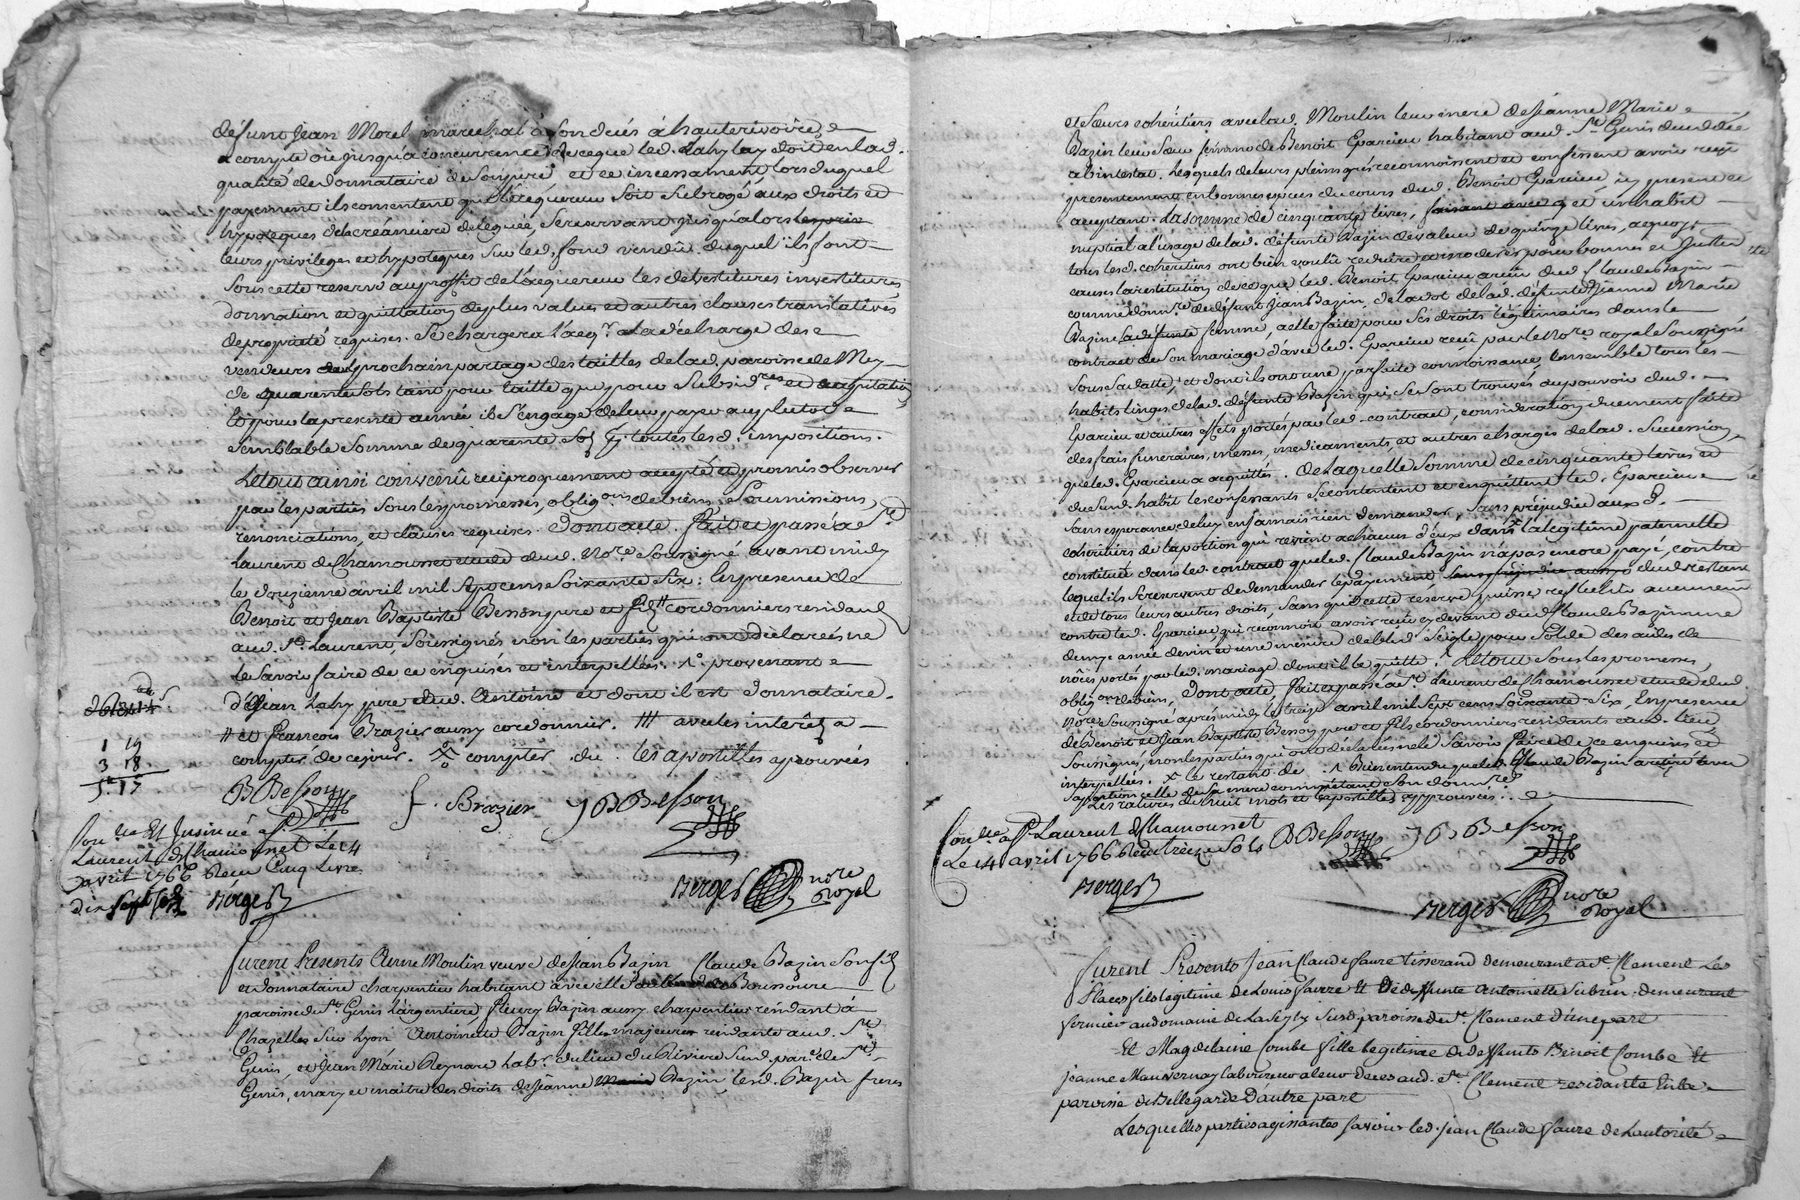 defunt Jean Morel marechal à son décés à hauterivoire,
a compte ou jusqu'à concurrence de ce que led. Lahy luy doit en lad.
qualité de donnataire de son pere et ce incessament lors duquel
payement ils consentent que l'acquereur soit subrogé aux droits et
hypoteques de la créanciere deleguée, se reservant jusqu'alors
leurs privileges et hypoteques sur led. fond vendu duquel ils font
sous cette reserve au proffit de l'acquereur les devestitures investitures
donnation et quittation de plus value et autres clauses translatives
de propriété requises. Se chargera l'acqr. a la décharge des
vendeurs au prochain partage des tailles de lad. paroisse de Mey
de quarente sols tant pour taille que pour subsid.res et
Et pour la presente année il s'engage de leur payer au plutot
semblable somme de quarente sols toutes lesd. impositions.
Le tout ainsi convenû reciproquement accepté et promis observer
par les parties sous les promesses, obligons. de biens, soumissions,
renonciations, et clauses requises. Dont acte. fait et passé a St.
Laurent de Chamousset etude dud. Nore. soussigné avant midy
le douzieme avril mil sept cens soixante six: En presence de
Benoit et Jean Baptiste Besson pere et fils cordonniers residants
aud. St. Laurent, soussignés non les parties qui ont déclarées ne
le savoir faire de ce enquises et interpellés. 1°. provenant
d'Jean Lahy pere dud. Antoine et dont il est donnataire.
# et François Brazier aussy cordonnier. ### avec les interêts a
compter de ce jour. compter du les apostilles approuvées
1 19
3 18
5 17
BBesson f. Brazier JBBesson
Con.lée Et Insinué a St.
Laurent de Chamousset Le 14
avril 1766 Recu Cinq Livres
dix sept sols Berger
Berger nore Royal
Furent Presents Anne Moulin veuve de Jean Bazin Claude Bazin son fils
et donnataire charpentier habitant avec elle Boussoure
paroisse de St. Genis l'argentiere, fleury Bazin aussy charpentier résidant à
Chazelles sur Lyon Antoinette Bazin fille majeure residante aud. St.
Genis, et Jean Marie Reynard labr. du lieu du Riviere sud. par.e de St.
Genis, mary et maitre des droits de Jeanne Marie Bazin lesd. Bazin freres
et soeurs cohéritiers avec lad. Moulin leur mere de Jeanne Marie
Bazin leur soeur femme de Benoit Eparcieu habitant aud. St. Genis decedée
abintestat. Lesquels de leurs pleins grés reconnoissent et confessent avoir reçu
presentement en bonnes espéces du cours dud. Benoit Eparcieu icy present et
acceptant. La somme de cinquante livres, et un habit
nuptial a l'usage de lad. défunte Bazin de valeur de quinze livres, a quoy
tous lesd. cohéritiers ont bien voulu reduire et moderer pour bonnes et justes
causes la restitution de ce que led. Benoit Eparcieu a reçu dud. Claude Bazin
comme donre. de défunt Jean Bazin, de la dot de lad. défunte Jeanne Marie
Bazin sa défunte femme, a elle faite pour ses droits légitimaires dans le
contract de son mariage d'avec led. Eparcieu reçû par le Nore. royal soussigné
sous sa datte, et dont ils ont une parfaite connoissance, ensemble tous les
habits linges de lad. défunte Bazin qui se sont trouvés au pouvoir dud.
Eparcieu et autres effets portés par led. contract, consideration duement faite
des frais funeraires, messes, medicaments, et autres charges de lad. succession,
que led. Eparcieu a acquittés. De Laquelle somme de cinquante livres et
du sud. habit les confessants se contentent et en quittent led. Eparcieu
sans esperance de luy en jamais rien demander, sans préjudice aux d.
cohéritiers de la portion qui revient a chacun d'eux dans la légitime paternelle
constitué dans led. contract que led. Claude Bazin n'a pas encore payé, contre
lequel ils se reservent de demander le payement dud. restant
et de tous leurs autres droits, sans que cette reserve puisse reflechir aucunement
contre led. Eparcieu qui reconnoit avoir reçu cy devant dud. Claude Bazin une
demye année de vin et une mesure de bled seigle pour solde des aides de
nôces portés par led. mariage dont il le quitte. Le tout sous les promesses,
oblig.ons de biens, Dont acte, fait et passé a St. Laurent de Chamousset etude dud.
Nore. soussigné après midy le treize avril mil sept cens soixante six, En presence
de Benoit et Jean Baptiste Besson pere et fils cordonniers residants aud. lieu
soussignés, non les parties qui ont déclarés ne le savoir faire de ce enquises et
interpellés. x le restant de 1 Bien entendu que led. Claude Bazin a reçu avec
sa portion celle de sa mere comme étant son donnre.
Les ratures de huit mots et les apostilles approuvées.
Con.lée a St. Laurent de Chamousset
Le 14 avril 1766 Recu treize Sols BBesson JBBesson
Berger
Berger nore Royal
Furent Presents Jean Claude faure tisserand demeurant a St. Clement Les
Places fils legitime de Louis faure Et De deffunte Antoinette Subrin demeurant
fermier au domaine de La susd. paroisse de St. Clement d'une part
Et Magdelaine Combe fille legitime de deffunts Benoit Combe Et
Jeanne Mauvernay laboureur a leur deces aud. St. Clement residante En la
paroisse de Bellegarde D'autre part
Lesquelles parties agissantes savoir led. Jean Claude faure de L'autorité